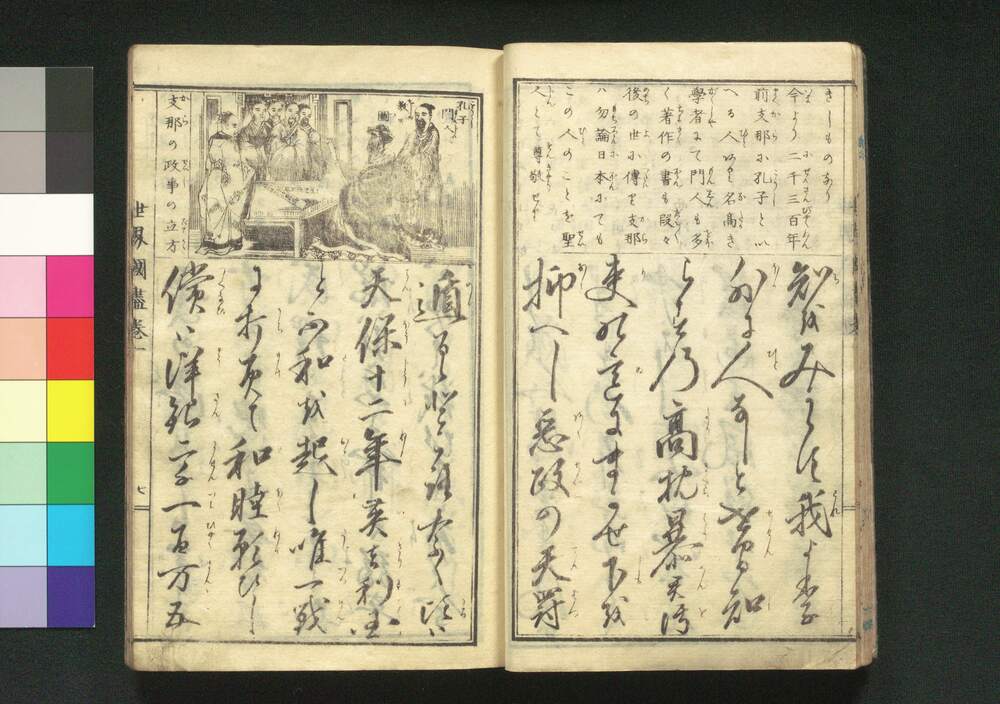 きしものなり
今より二千三百年
前支那に孔子とい
へる人あり名高き
學者にて門人も多
く著作の書も段々
後の世に傳り支那
ハ勿論日本にても
この人のことを聖
人とて尊敬せり
知をみらく须我より
外に人なしと世間知
らすの高枕暴君汚
吏の意にまかせ下を
抑へし悪政の天罰
孔子
門人
教
圖
支那の政事の立方
遁るゝ所なく頃ハ
天保十二年英吉利国
と不和を起し唯一戦
に打負て和睦願ひし
償ハ洋銀二千一百万五
世界國盡卷一
七